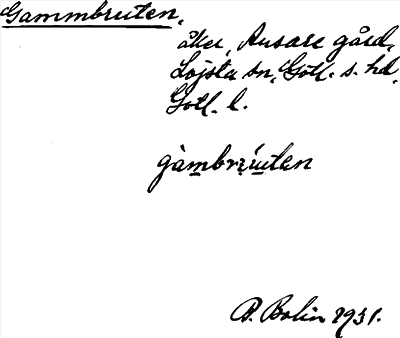 Gammbruten,
åker, Ansare gård,
Lojsta sn, Gotl. s. hd,
Gotl. l.
gàmbrúuten
P. Bolin 1931.